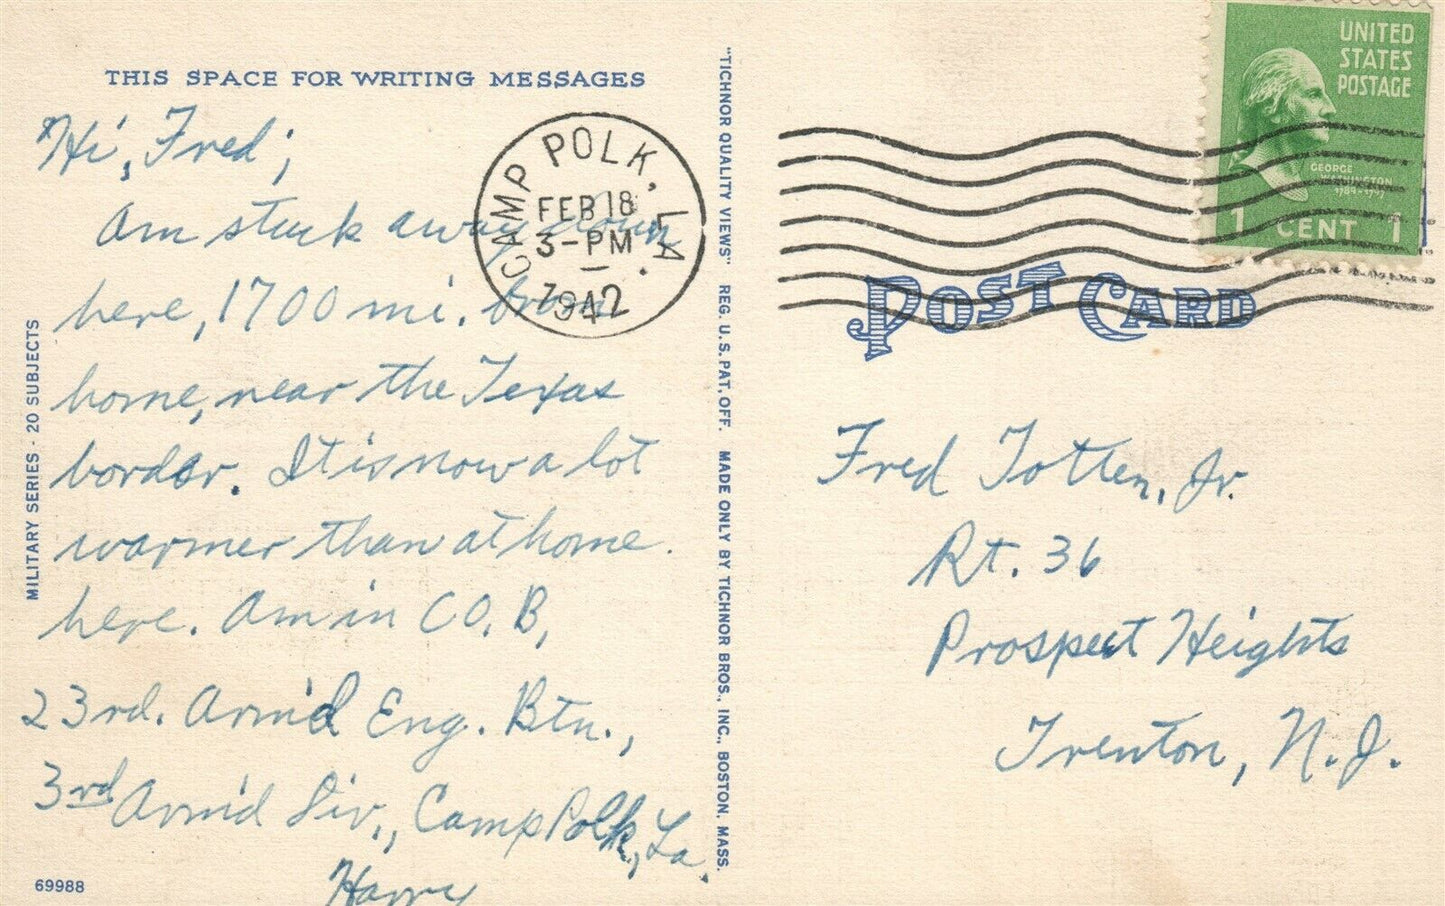 THIS SPACE FOR WRITING MESSAGES
Hi, Fred;
Am stuck away down
here, 1700 mi. from
home, near the Texas
border. It is now a lot
warmer than at home.
here. Am in CO. B,
23rd. Arm'd Eng. Btn.,
3rd Arm'd Div., Camp Polk, La.
Harry
69988
MILITARY SERIES - 20 SUBJECTS
CAMP POLK, LA.
FEB 18
3-PM
1942
"TICHNOR QUALITY VIEWS" REG. U.S. PAT. OFF. MADE ONLY BY TICHNOR BROS., INC., BOSTON, MASS.
UNITED
STATES
POSTAGE
GEORGE
WASHINGTON
1 CENT 1
POST CARD
Fred Totten, Jr.
Rt. 36
Prospect Heights
Trenton, N.J.